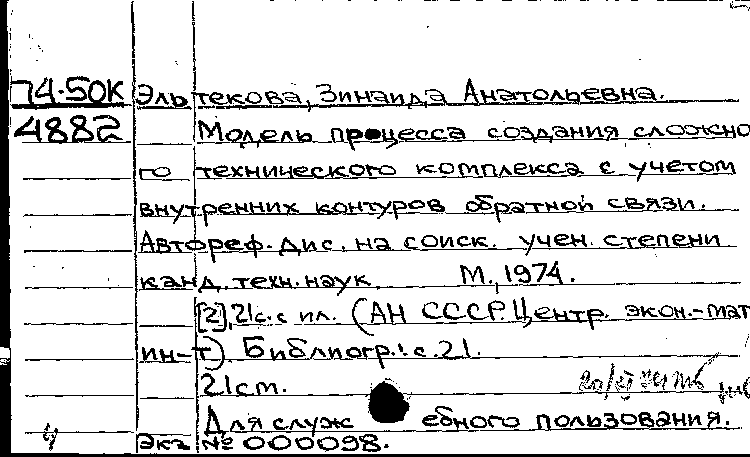 74-50К Эльтекова, Зинаида Анатольевна.
4882 Модель процесса создания сложно
го технического комплекса с учетом
внутренних контуров обратной связи.
Автореф. дис. на соиск. учен. степени
канд. техн. наук. М., 1974.
[2], 21с. с ил. (АН СССР. Центр. экон.-мат
ин-т). Библиогр.: с. 21.
21см.
Для служебного пользования.
Экз №000098.